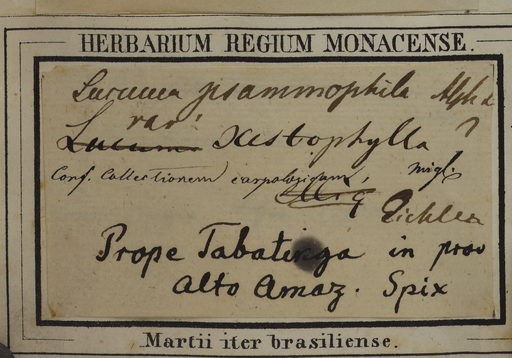 HERBARIUM REGIUM MONACENSE.
Lucuma psammophila Alpha
var: ?
Lucuma xestophylla
Conf. Collectionem carpologicam, Miq!
Miq Eichler
Prope Tabatinga in prov
alto Amaz. Spix
Martii iter brasiliense.